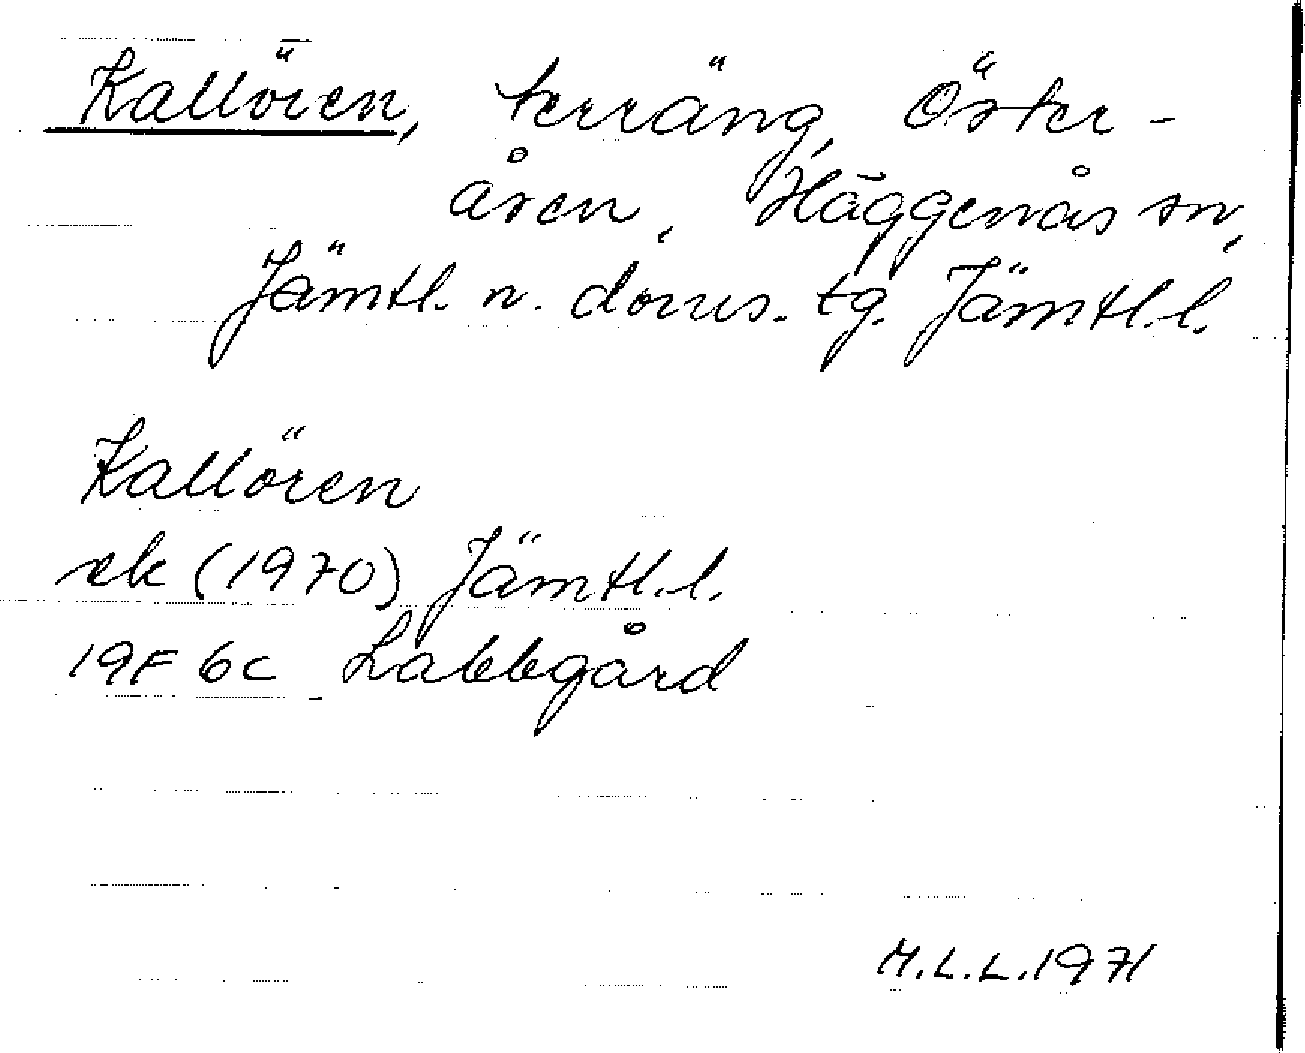 Kallören, terräng, Öster-
åsen, Häggenås sn,
Jämtl. n. doms. tg. Jämtl. l.
Kallören
ek (1970) Jämtl. l.
19F 6c Labbgård
M.L.L. 1971